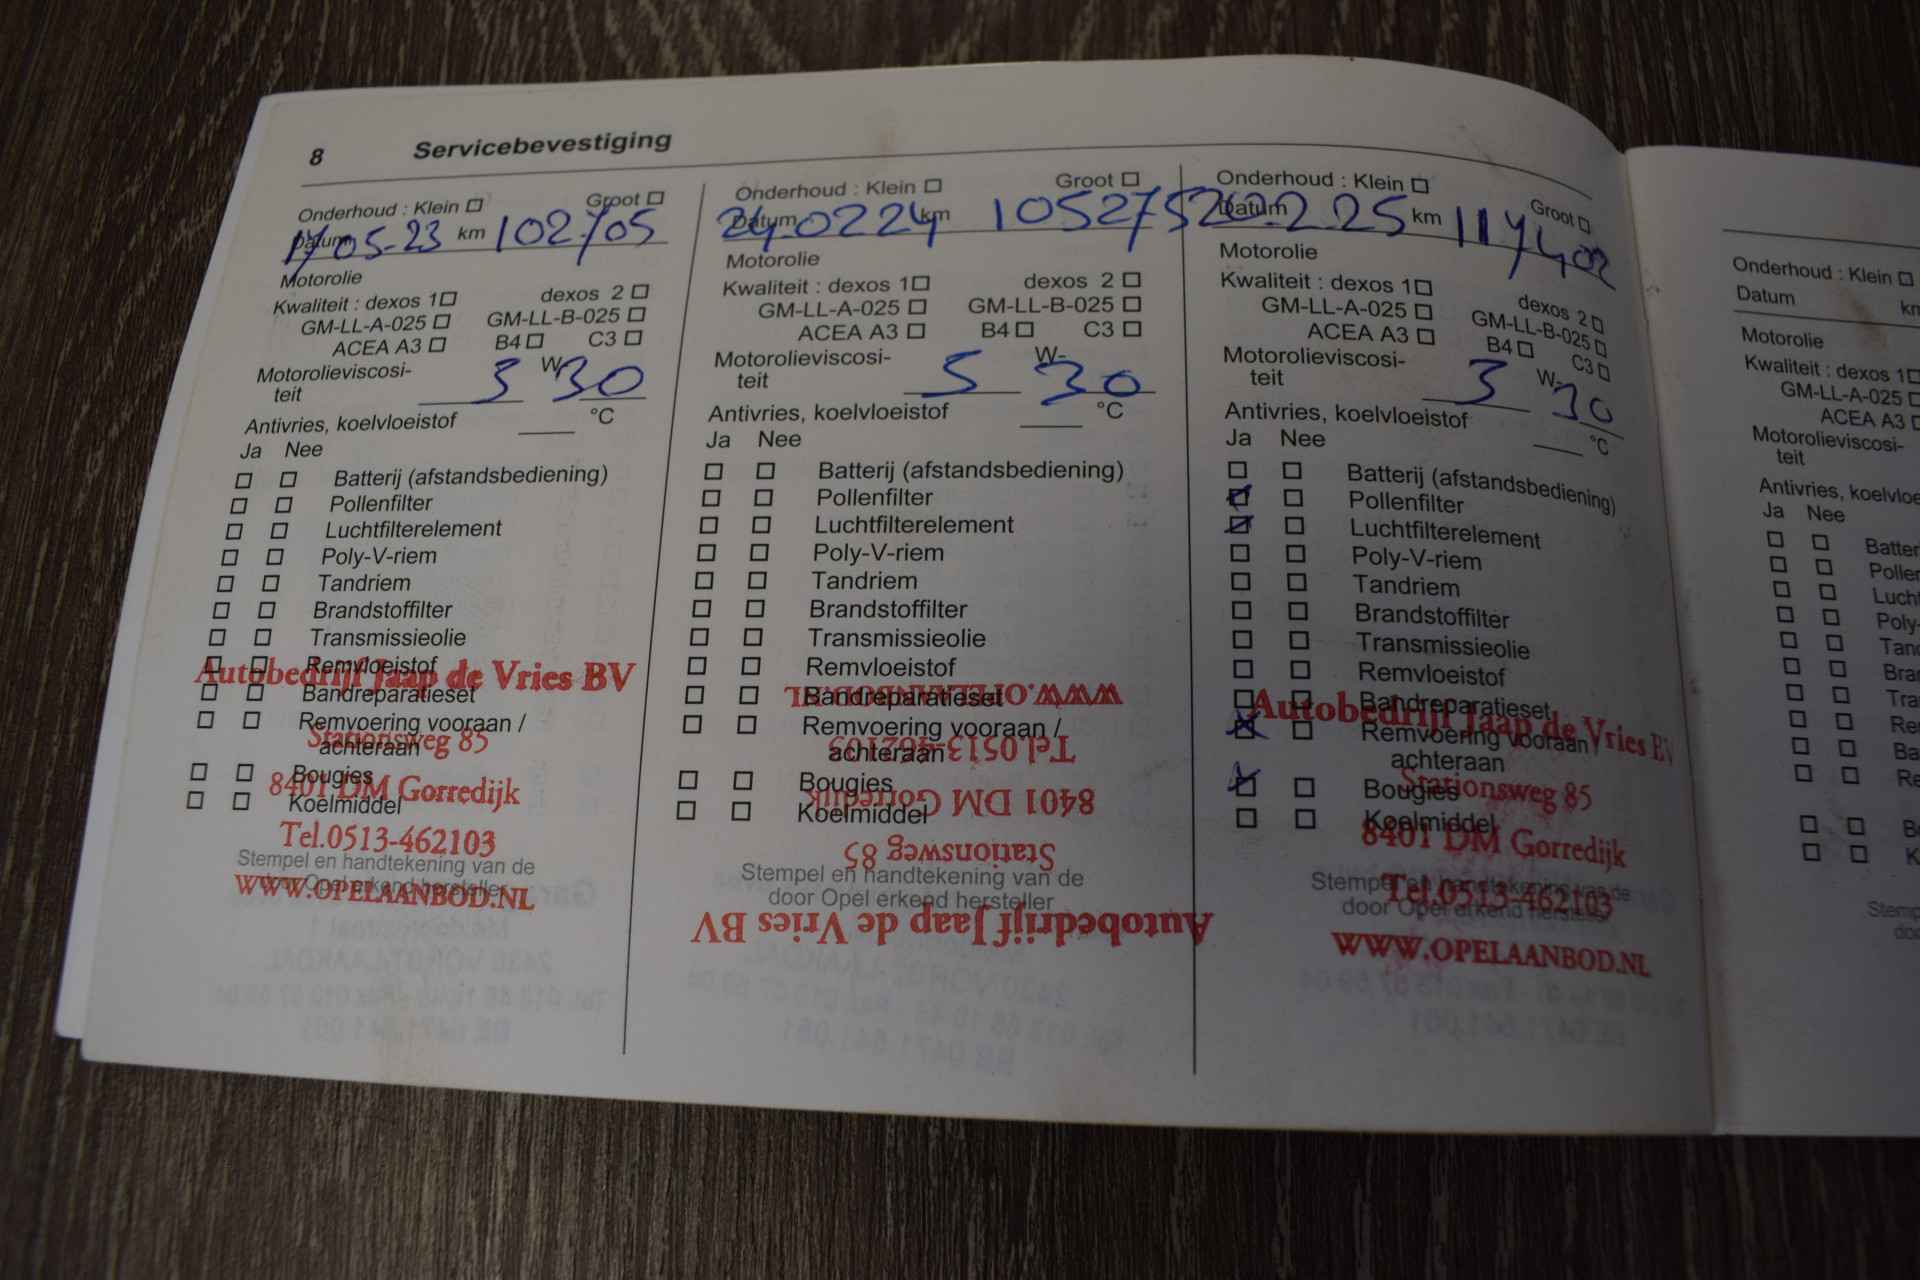 8 Servicebevestiging
Onderhoud : Klein ☐ Groot ☐
Datum 17/05-23 km 102705
Motorolie
Kwaliteit : dexos 1 ☐ dexos 2 ☐
GM-LL-A-025 ☐ GM-LL-B-025 ☐
ACEA A3 ☐ B4 ☐ C3 ☐
Motorolieviscosi-
teit 5 W- 30
Antivries, koelvloeistof ____ °C
Ja Nee
☐ ☐ Batterij (afstandsbediening)
☐ ☐ Pollenfilter
☐ ☐ Luchtfilterelement
☐ ☐ Poly-V-riem
☐ ☐ Tandriem
☐ ☐ Brandstoffilter
☐ ☐ Transmissieolie
☐ ☐ Remvloeistof
Autobedrijf Jaap de Vries BV
☐ ☐ Bandreparatieset
☐ ☐ Remvoering vooraan /
Stationsweg 85
achteraan
☐ ☐ Bougies
8401 DM Gorredijk
☐ ☐ Koelmiddel
Tel.0513-462103
Stempel en handtekening van de
door Opel erkend hersteller
WWW.OPELAANBOD.NL
Onderhoud : Klein ☐ Groot ☐
Datum 24-0224 km 105275
Motorolie
Kwaliteit : dexos 1 ☐ dexos 2 ☐
GM-LL-A-025 ☐ GM-LL-B-025 ☐
ACEA A3 ☐ B4 ☐ C3 ☐
Motorolieviscosi-
teit 5 W- 30
Antivries, koelvloeistof ____ °C
Ja Nee
☐ ☐ Batterij (afstandsbediening)
☐ ☐ Pollenfilter
☐ ☐ Luchtfilterelement
☐ ☐ Poly-V-riem
☐ ☐ Tandriem
☐ ☐ Brandstoffilter
☐ ☐ Transmissieolie
☐ ☐ Remvloeistof
☐ ☐ Bandreparatieset
WWW.OPELAANBOD.NL
☐ ☐ Remvoering vooraan /
achteraan
Tel.0513-462103
☐ ☐ Bougies
8401 DM Gorredijk
☐ ☐ Koelmiddel
Stationsweg 85
Stempel en handtekening van de
door Opel erkend hersteller
Autobedrijf Jaap de Vries BV
Onderhoud : Klein ☐ Groot ☐
Datum 20-2-25 km 117402
Motorolie
Kwaliteit : dexos 1 ☐ dexos 2 ☐
GM-LL-A-025 ☐ GM-LL-B-025 ☐
ACEA A3 ☐ B4 ☐ C3 ☐
Motorolieviscosi-
teit 5 W- 30
Antivries, koelvloeistof ____ °C
Ja Nee
☐ ☐ Batterij (afstandsbediening)
☒ ☐ Pollenfilter
☒ ☐ Luchtfilterelement
☐ ☐ Poly-V-riem
☐ ☐ Tandriem
☐ ☐ Brandstoffilter
☐ ☐ Transmissieolie
☐ ☐ Remvloeistof
☐ ☐ Bandreparatieset
Autobedrijf Jaap de Vries BV
☒ ☐ Remvoering vooraan /
achteraan
Stationsweg 85
☒ ☐ Bougies
☐ ☐ Koelmiddel
8401 DM Gorredijk
Stempel en handtekening van de
Tel.0513-462103
door Opel erkend hersteller
WWW.OPELAANBOD.NL
Onderhoud : Klein ☐
Datum
Motorolie
Kwaliteit : dexos 1 ☐
GM-LL-A-025
ACEA A3
Motorolieviscosi-
teit
Antivries, koelvloe
Ja Nee
☐ ☐ Batter
☐ ☐ Pollen
☐ ☐ Lucht
☐ ☐ Poly-
☐ ☐ Tand
☐ ☐ Bra
☐ ☐ Tra
☐ ☐ Re
☐ ☐ Ba
☐ ☐ Re
☐ ☐ B
☐ ☐ K
Stemp
doo